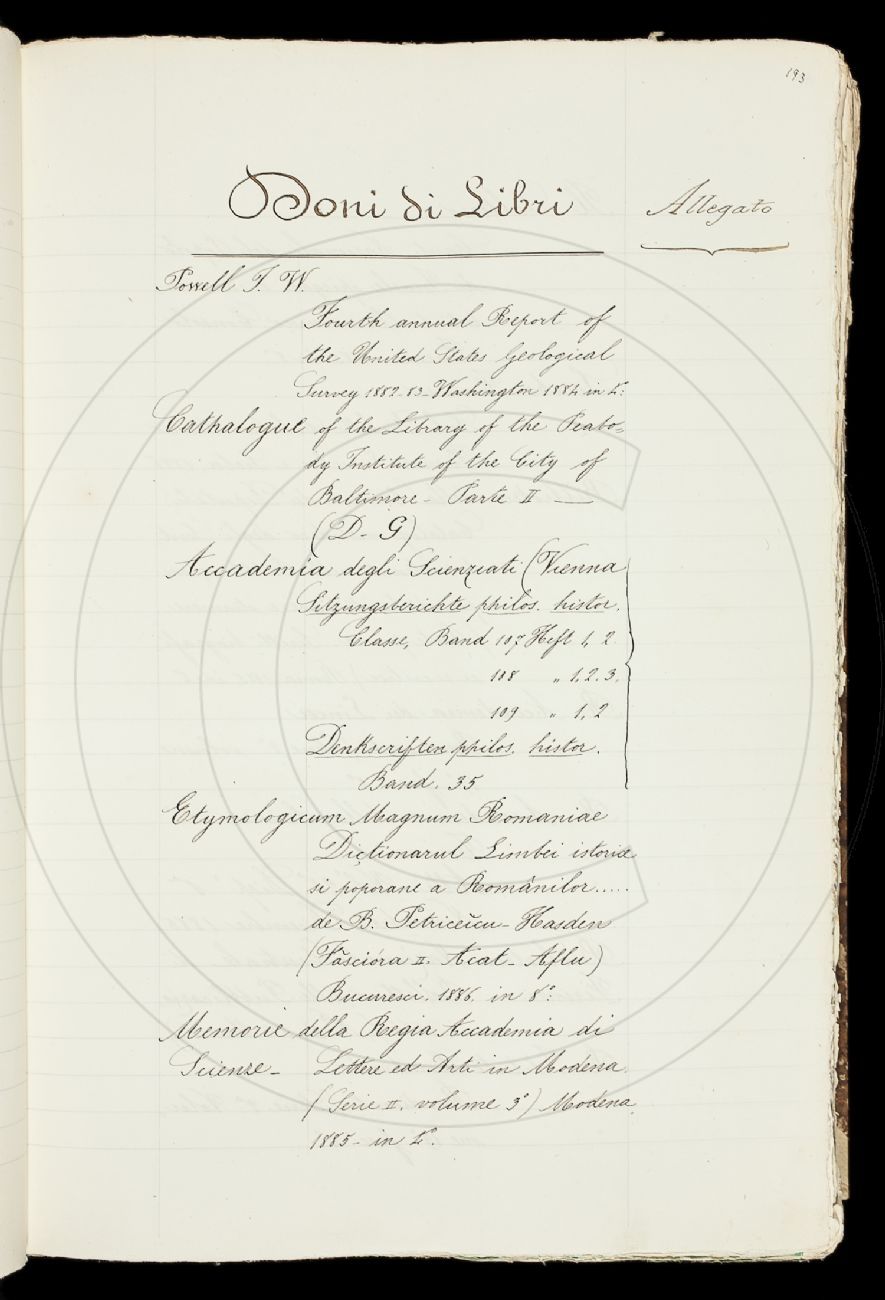 193
Doni di Libri
Allegato
Powell J. W.
Fourth annual Report of
the United States Geological
Survey 1882-83 - Washington 1884 in 4°:
Cathalogue of the Library of the Peabo=
dy Institute of the City of
Baltimore - Parte II —
(D - G)
Accademia degli Scienziati (Vienna
Sitzungsberichte philos. histor.
Classe, Band 107 Heft 1, 2
108 „ 1. 2. 3.
109 „ 1, 2
Denkscriften philos. histor.
Band. 35
Etymologicum Magnum Romaniae
Dicţionarul Limbei istorice
si poporane a Românilor.....
de B. Petriceĭcu - Hasden
(Făscióra II. Acat - Aflu)
Bucuresci. 1886. in 8°:
Memorie della Regia Accademia di
Scienze - Lettere ed Arti in Modena.
(Serie II. volume 3°) Modena
1885 - in 4°.